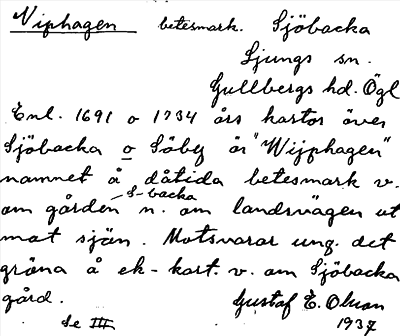 Vi̲p̲h̲a̲g̲e̲n̲ betesmark. Sjöbacka
Ljungs sn.
Gullbergs hd. Ögl
Enl. 1691 o 1734 års kartor över
Sjöbacka o Söby är "Wijphagen"
namnet å dåtida betesmark v.
om gården S-backa n. om landsvägen ut
mot sjön. Motsvarar ung. det
gröna å ek-kart. v. om Sjöbacka
gård. Gustaf E. Olsson
Se III 1937